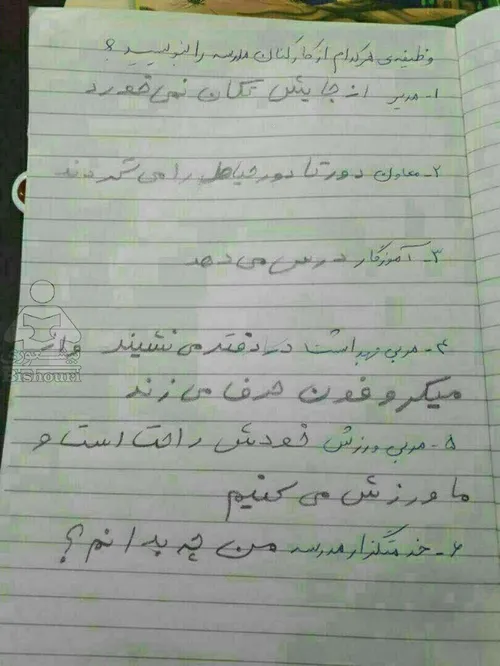 وظیفه‌ی هر کدام از کارکنان مدرسه را بنویسید ؟
۱- مدیر از جایش تکان نمی خورد
۲- معاون دور تا دور حیاط را می گردند
۳- آموزگار درس می دهد
۴- مربی بهداشت در دفتر می نشیند و از
میکروفون حرف می زند
۵- مربی ورزش خودش راحت است و
ما ورزش می کنیم
۶- خدمتگزار مدرسه من چه بدانم ؟
بیشوری
Bishouri